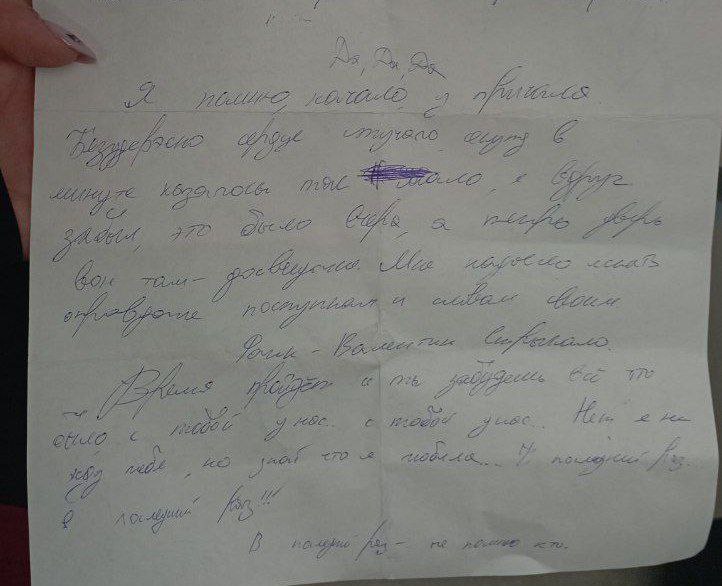 Да, Да, Да
Я помню, начало, у причала.
Безудержно сердце стучало, секунд в
минуте казалось так мало, я вдруг
забыл, это было вчера, а теперь дверь
вон там - досвидание. Мне надоело искать
оправдание поступкам и словам своим
- Валентин Стрыкало.
Время пройдёт и ты забудешь всё что
было с тобой у нас.. с тобой у нас... Нет я не
жду тебя, но знай что я любила... И последний раз.
в последний раз!!!
В последний раз - не помню кто.